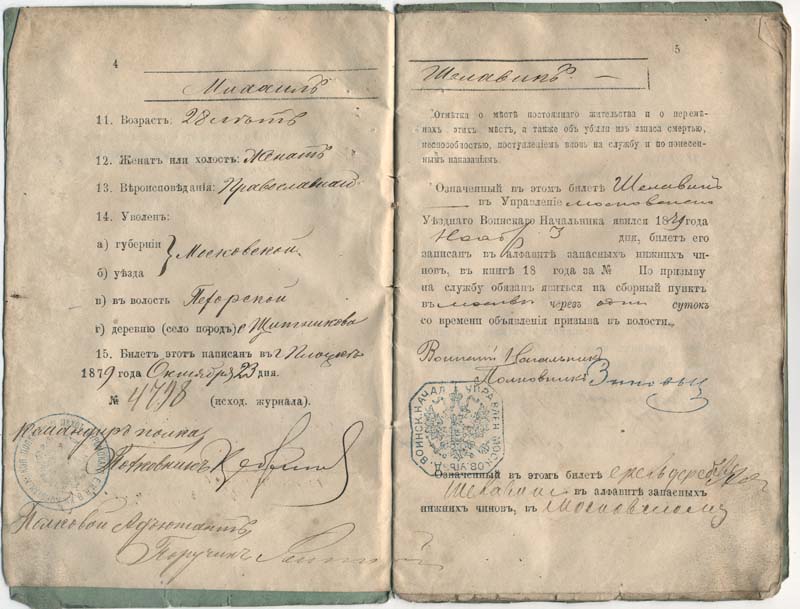 4
Михаилъ
11. Возрастъ: 28 лѣтъ
12. Женатъ или холостъ: Женатъ
13. Вѣроисповѣданія: Православнаго
14. Уволенъ:
а) губерніи
Московской
б) уѣзда
в) въ волость
г) деревню (село породъ) с. Щитникова
15. Билетъ этотъ написанъ въ г. Плоцкѣ
1879 года Октября 23 дня.
№ 4798 (исход. журнала).
Командиръ полка,
Полковникъ
Полковой Адъютантъ
Поручикъ
5
Шелавинъ. —
Отмѣтка о мѣстѣ постояннаго жительства и о перемѣ-
нахъ этихъ мѣстъ, а также объ убыли изъ запаса смертью,
неспособностью, поступленіемъ вновь на службу и по понесен-
нымъ наказаніямъ.
Означенный въ этомъ билетѣ Шелавинъ
въ Управленіе Московскаго
Уѣзднаго Воинскаго Начальника явился 1879 года
Ноябр 3 дня, билетъ его
записанъ въ алфавитѣ запасныхъ нижнихъ чи-
новъ, въ книгѣ 18 года за № По призыву
на службу обязанъ явиться на сборный пунктъ
въ Москвы черезъ одни сутокъ
со времени объявленія призыва въ волости.
Воинскій Начальникъ
Полковникъ
У. ВОИНСК. НАЧАЛ. УПРАВЛЕН. МОСКОВ.
Означенный въ этомъ билетѣ
Шелавинъ въ алфавитѣ запасныхъ
нижнихъ чиновъ, въ Московскому